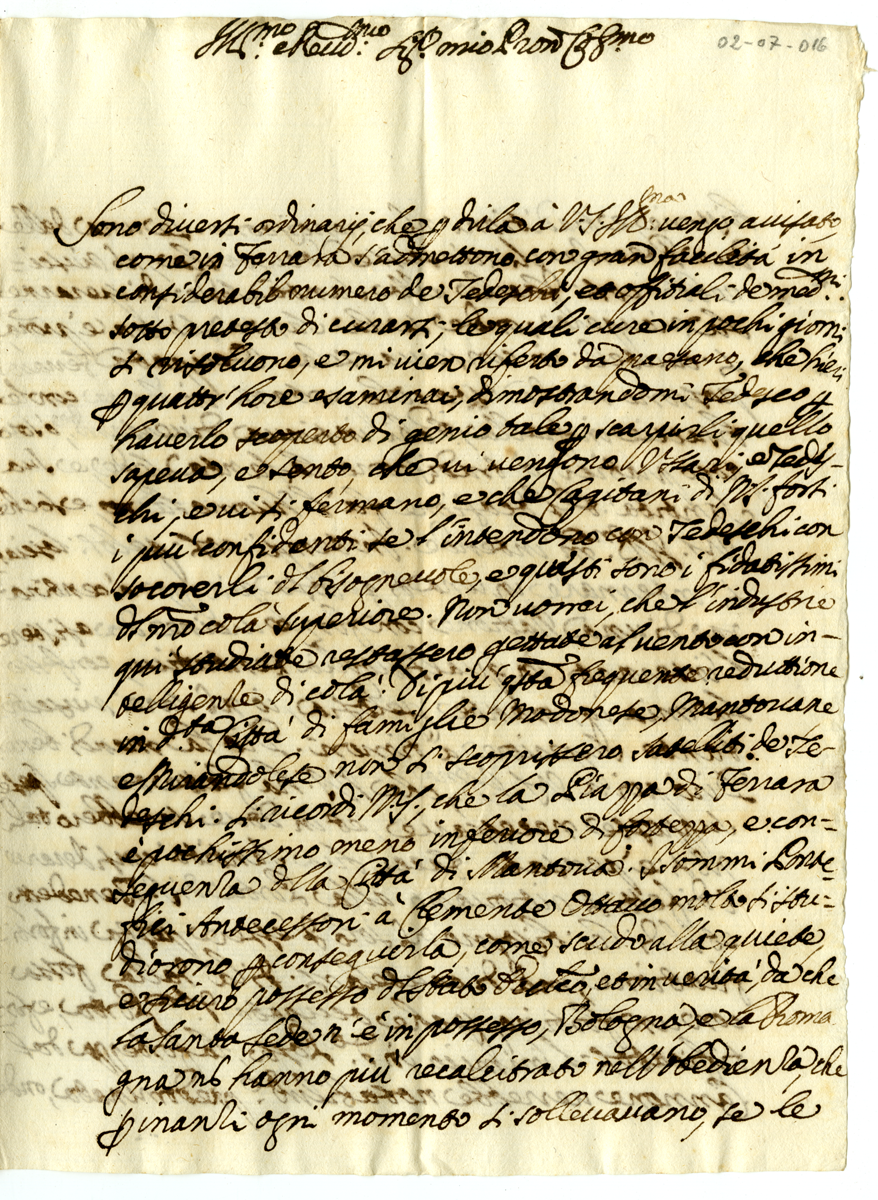 Ill.mo e Rev.mo Sig.r mio Pron Col.mo
02-07-016
Sono diversi ordinarij, che p dirla à V.S. Ill.ma vengo avisato,
come in Ferrara s'admettono con gran facilità in
considerabil numero de Tedeschi, et offitiali de med.mi
sotto pretesto di curarsi, le quali cure in pochi giorni
si risoluono, e mi vien riferto da paesano, che hieri
p quattr'hore esaminai, dimostrandomi Tedesco p
haverlo scoperto di genio tale p scarpirli quello
sapeva, e sento, che vi vengono Vssari, e Tede-
chi, e vi si fermano, e che Capitani di N.S. forti
i più confidenti se l'intendono con Tedeschi con
socorerli dl bisognevole, e questi sono i fidatissimi
dl mō colà superiore. Non vorrei, che l'industrie
qui studiate restassero gettate al vento con in-
telligenze di colà. Di più qsta frequente reduttione
in d.ta Città di famiglie Modonese, Mantovane
e Mirandolese non si scoprissero satelliti de Te-
deschi. Si ricordi N.S., che la Piazza di Ferrara
è pochissimo meno inferiore di fortezza, e con-
sequenza dlla Città di Mantova. I sommi Ponte-
fici Antecessori à Clemente Ottavo molto si stu-
diorono p conseguirla, come scudo alla quiete,
e sicuro possesso dl stato Eccl.co, et in verità, da che
la Santa Sede n'è in possesso, Bologna, e la Roma
gna nō hanno più recalcitrato nell'obedienza, che
p inanzi ogni momento si sollevavano, se le